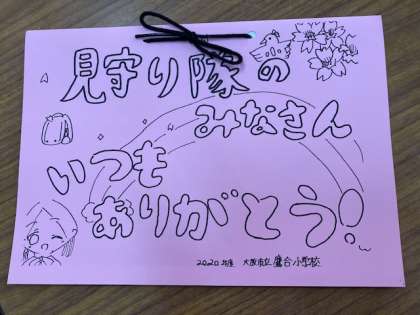 見守り隊の
みなさん
いつも
ありがとう!
2020年度 大阪市立 鷹合小学校